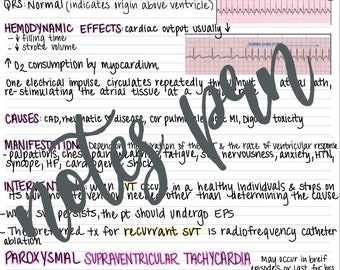 QRS: Normal (indicates origin above ventricle)
HEMODYNAMIC EFFECTS: cardiac output usually ↓
- ↓ filling time
- ↓ stroke volume
↑ O2 consumption by myocardium
one electrical impulse circulates repeatedly throughout path,
re-stimulating the atrial tissue at a rate
CAUSES: CAD, rheumatic disease, cor pulmonale, MI, Digoxin toxicity
MANIFESTATIONS: Depends on the duration of the & the rate of ventricular response
- palpitations, chest pain, weakness, fatigue, nervousness, anxiety, HTN,
syncope, HF, cardiogenic shock
INTERVENTIONS: when SVT occurs in a healthy individuals & stops on
its own, no intervention needed other than determining the cause
- when SVT persists, the pt should undergo EPS
- The preferred tx for recurrent SVT is radiofrequency catheter
ablation
PAROXYSMAL SUPRAVENTRICULAR TACHYCARDIA - may occur in brief
episodes or last for hrs
notes pen